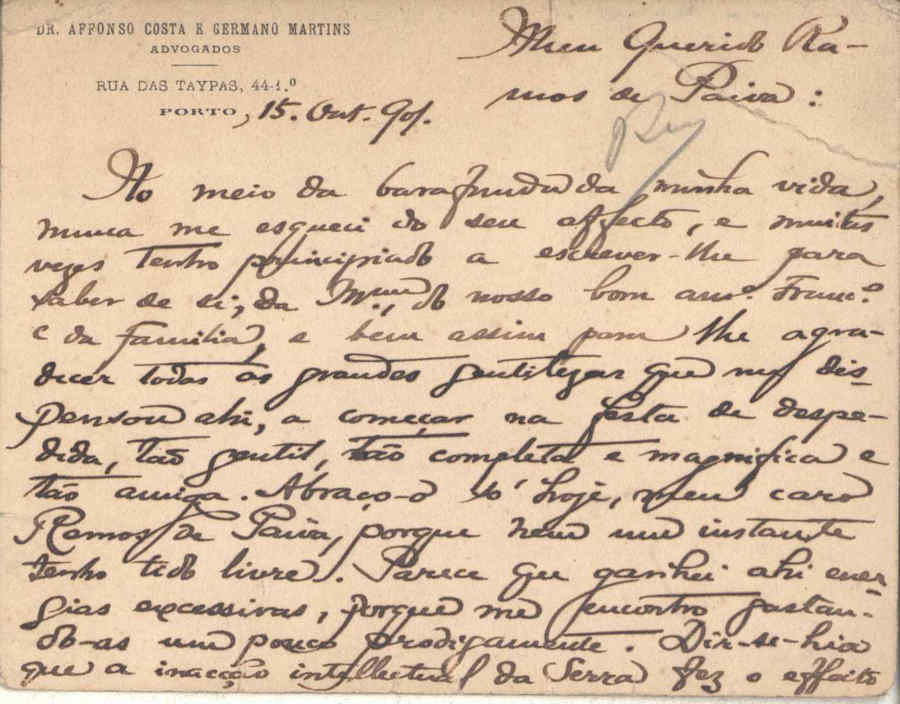 DR. AFFONSO COSTA E GERMANO MARTINS
ADVOGADOS
RUA DAS TAYPAS, 44-1.º
PORTO, 15. Out. 901.
Meu Querido Ra-
mos de Paiva:
No meio da barafunda da minha vida,
nunca me esqueci do seu affecto, e muitas
vezes tenho principiado a escrever-lhe para
saber de si, da do nosso bom am.º Franc.º
e da familia, e bem assim para lhe agra-
decer todas as grandes gentilezas que me dis-
pensou ahi, a começar na festa de despe-
dida, tão gentil, tão completa e magnifica e
tão amiga. Abraço-o só hoje, meu caro
Ramos de Paiva, porque nem um instante
tenho tido livre. Parece que ganhei ahi ener-
gias excessivas, porque me encontro gastan-
do-as um pouco prodigamente. Dir-se-hia
que a inacção intellectual da Serra fez o effeito